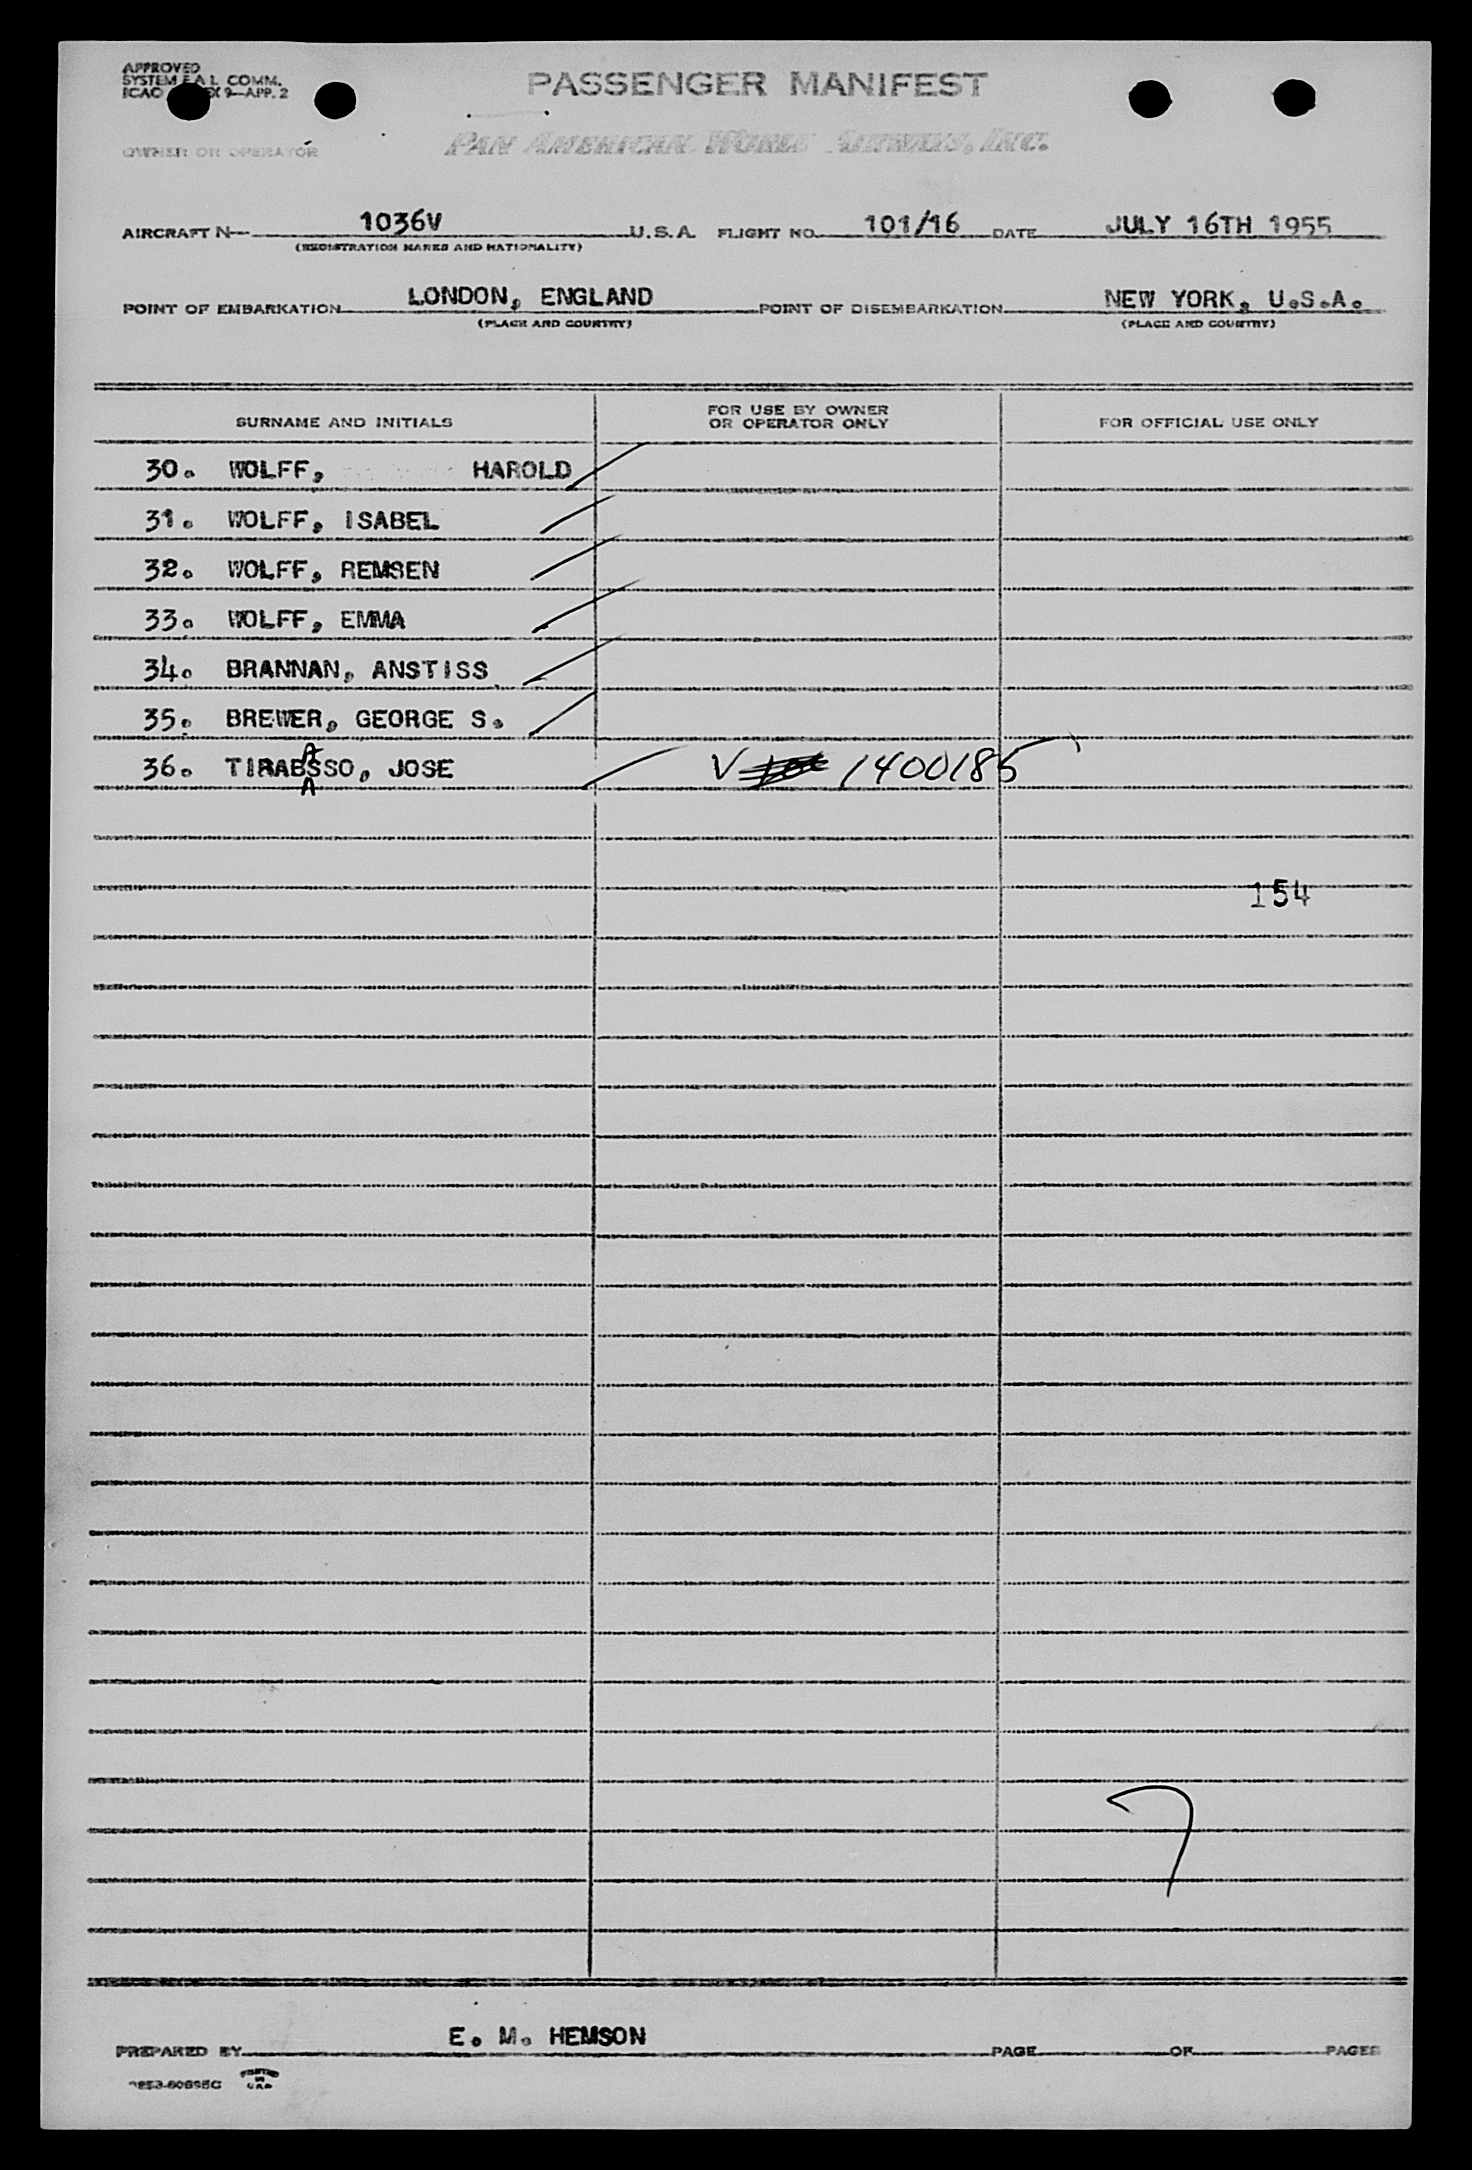 APPROVED
SYSTEM F.A.L. COMM.
ICAO X 9—APP. 2
PASSENGER MANIFEST
OWNER OR OPERATOR
PAN AMERICAN WORLD AIRWAYS, INC.
AIRCRAFT N— 1036V U.S.A. FLIGHT NO. 101/16 DATE JULY 16TH 1955
(REGISTRATION MARKS AND NATIONALITY)
POINT OF EMBARKATION LONDON, ENGLAND POINT OF DISEMBARKATION NEW YORK, U.S.A.
(PLACE AND COUNTRY) (PLACE AND COUNTRY)
SURNAME AND INITIALS FOR USE BY OWNER OR OPERATOR ONLY FOR OFFICIAL USE ONLY
30. WOLFF, HAROLD
31. WOLFF, ISABEL
32. WOLFF, REMSEN
33. WOLFF, EMMA
34. BRANNAN, ANSTISS
35. BREWER, GEORGE S.
A
36. TIRABSSO, JOSE V 1400185
A
154
7
E. M. HEMSON
PREPARED BY PAGE OF PAGES
PRINTED IN U.S.A.